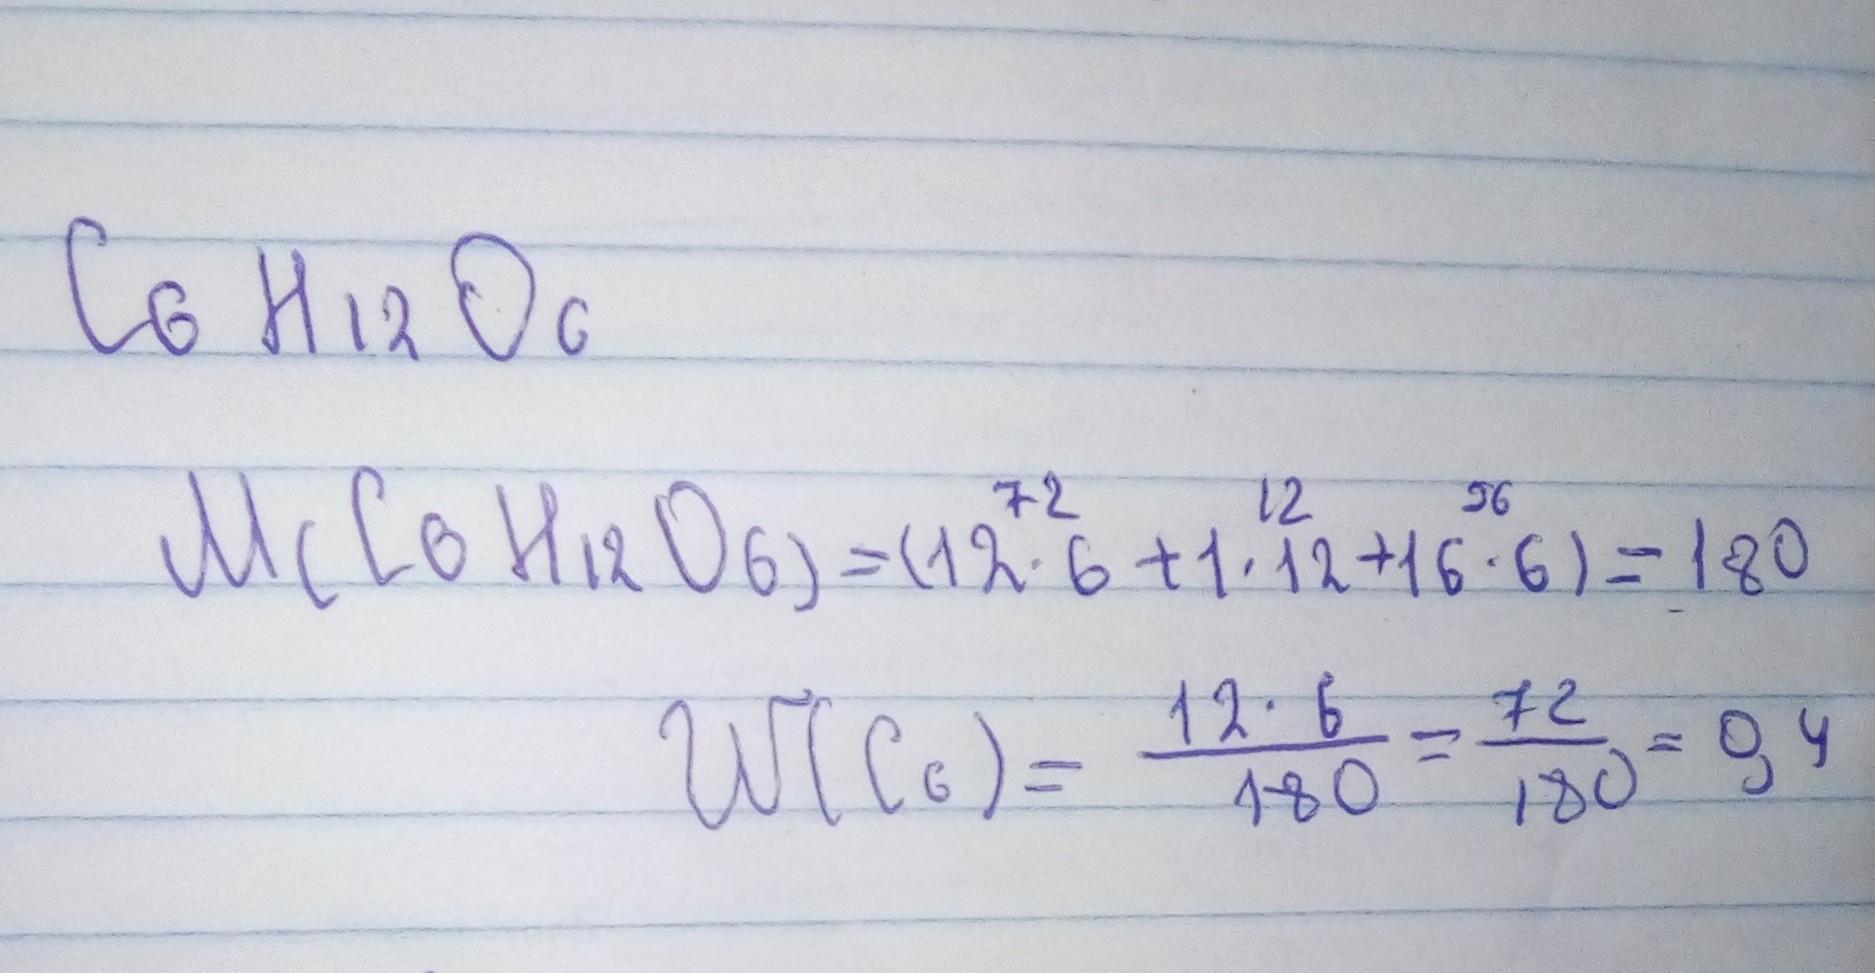 C6 H12 O6
M(C6 H12 O6) = (12 · 6 + 1 · 12 + 16 · 6) = 180
72 12 96
W(C6) = 12 · 6 / 180 = 72 / 180 = 0,4